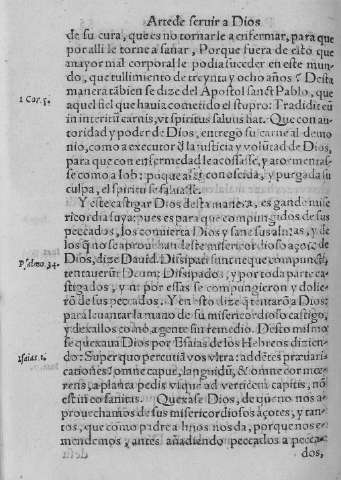 Arte de seruir a Dios
de su cura, que es no tornarle a enfermar, para que
por alli le torne a sanar, Porque fuera de esto que
mayor mal corporal le podia suceder en este mun
do, que tullimiento de treynta y ocho años? Desta
manera tãbien se dize del Apostol sanct Pablo, que
1 Cor. 5.
aquel fiel que hauia cometido el stupro: Tradidit eũ
in interitũ carnis, vt spiritus saluus fiat. Que con au-
toridad y poder de Dios, entregò su carne al demo
nio, como a executor d̃ la justicia y volũtad de Dios,
para que con enfermedad le acossasse, y atormentas-
se como a Iob: porque assi conoscida, y purgada su
culpa, el spiritu se saluasse.
Y este castigar Dios desta manera, es gande mise
ricordia suya: pues es para que compungidos de sus
peccados, los conuierta Dios y sane sus almas, y de
los q̃ no se aprouechan deste misericordioso açote de
Psalmo. 34.
Dios, dize Dauid. Dissipati sunt nec que compuncti,
tentauerũt Deum: Dissipados, y por toda parte ca-
stigados, y ni por essas se compungieron y dolie-
rõ de sus peccados. Y en esto dize q̃ tentarõ a Dios:
para leuantar la mano de su misericordioso castigo,
y dexallos como a gente sin remedio. Desto mismo
se quexaua Dios por Esaias de los Hebreos dizien-
Isaias. 1.
do: Super quo percutiã vos vltra: addẽtes præuari-
cationẽs? omne caput, languidũ, & omne cor mœ-
rens, a planta pedis vsque ad verticem capitis, nõ
est in eo sanitas. Quexase Dios, de que no nos a-
prouechamos de sus misericordiosos açotes, y tan-
tos, que como padre a hijos nos da, porque nos e-
mendemos, antes añadiendo peccados a pecca-
dos,